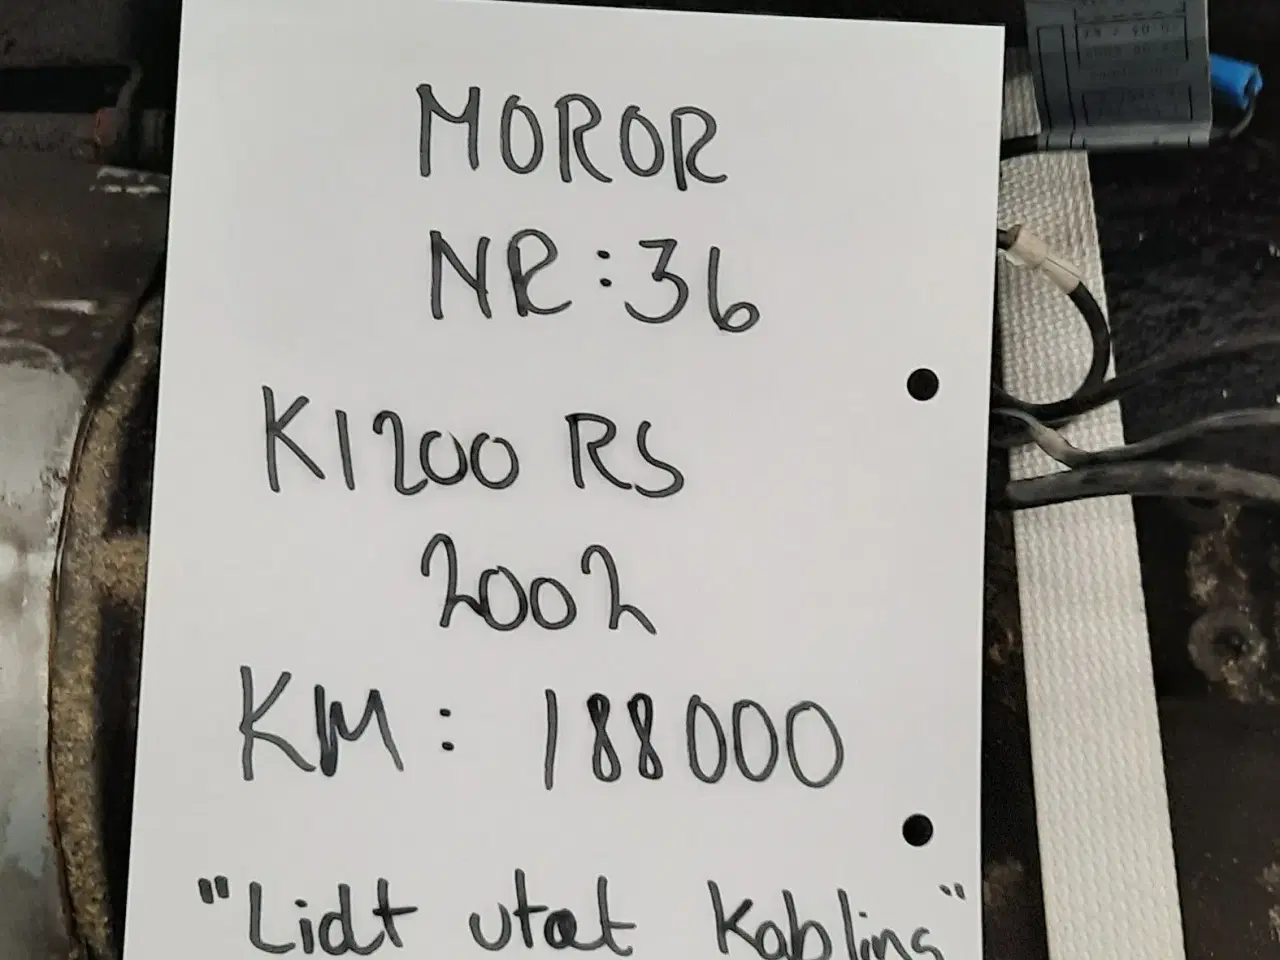 MOROR
NR:36
K1200 RS
2002
KM: 188000
"Lidt utæt Kobling"